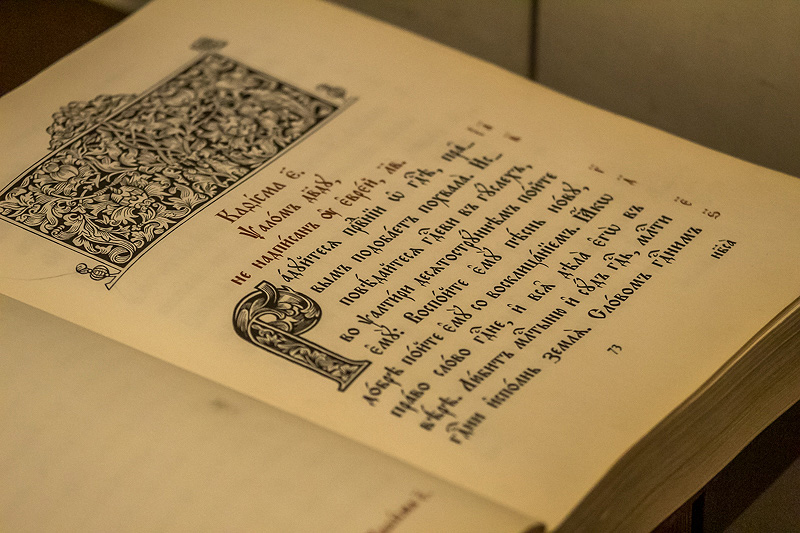 Каѳі́сма є҃.
Ѱало́мъ дв҃ду,
не надпи́санъ ᲂу҆ є҆вре́й, лв҃.
Ра́дуйтесѧ првⷣнїи ѡ҆ гдⷭ҇ѣ, пра̑- а҃
вымъ подоба́етъ похвала̀. И҆с- в҃
повѣ́дайтесѧ гдⷭ҇еви въ гꙋ́слехъ,
во ѱалти́ри десѧтострꙋ́ннѣмъ по́йте
є҆мꙋ̀: Воспо́йте є҆мꙋ̀ пѣ́снь но́вꙋ, г҃
до́брѣ по́йте є҆мꙋ̀ со восклица́нїемъ. Ꙗ҆́кѡ д҃
пра́во сло́во гдⷭ҇не, и҆ всѧ̑ дѣла̀ є҆гѡ̀ въ
вѣ́рѣ. Лю́битъ млⷭ҇тыню и҆ сꙋ́дъ гдⷭ҇ь, млⷭ҇ти є҃
гдⷭ҇ни и҆спо́лнь землѧ̀. Сло́вомъ гдⷭ҇нимъ ѕ҃
нб҃са̀
73